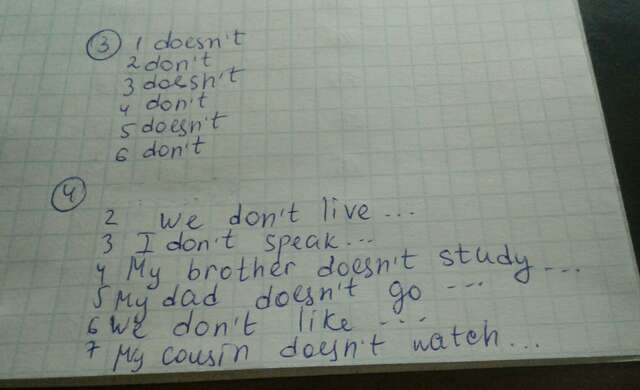 3 1 doesn't
2 don't
3 doesn't
4 don't
5 doesn't
6 don't
4
2 we don't live...
3 I don't speak...
4 My brother doesn't study...
5 My dad doesn't go ...
6 we don't like ...
7 My cousin doesn't watch...